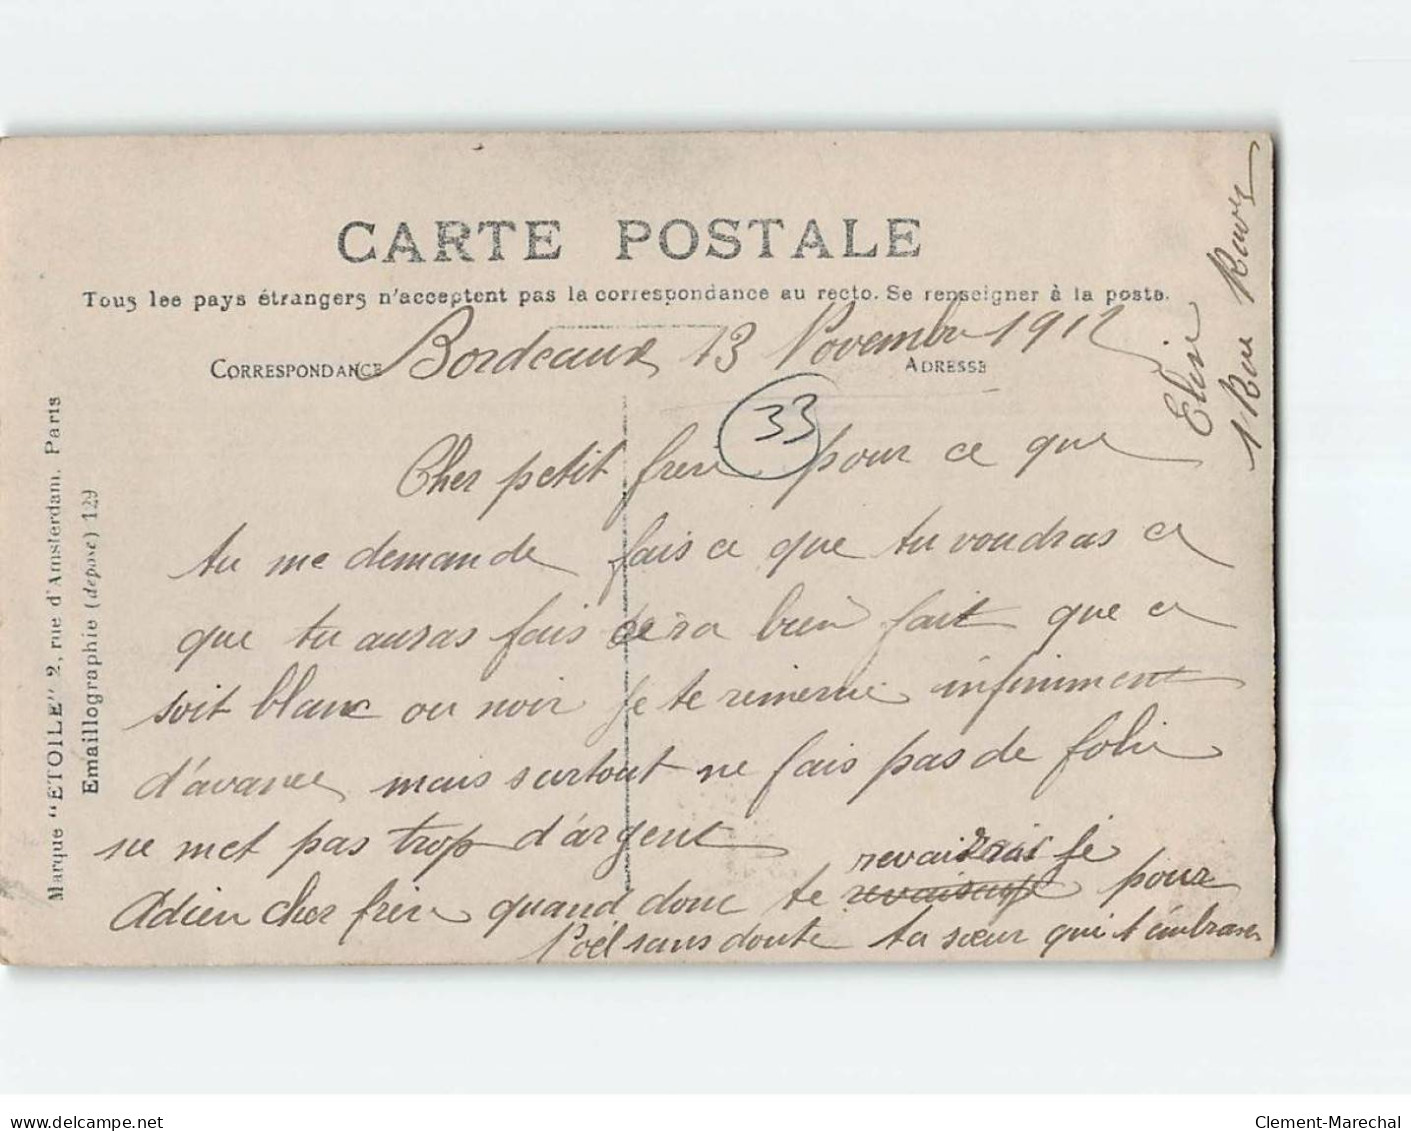 CARTE POSTALE
Tous les pays étrangers n'acceptent pas la correspondance au recto. Se renseigner à la poste.
CORRESPONDANCE
ADRESSE
Bordeaux 13 Novembre 1912
33
Cher petit frere pour ce que
tu me demande fais ce que tu voudras ce
que tu auras fais cera bien fait que ce
soit blanc ou noir je te remercie infiniment
d'avance mais surtout ne fais pas de folie
ne met pas trop d'argent
Adieu cher frere quand donc te revaidrai je pour
Noël sans doute ta sœur qui t'embrasse
Elise
1 Rue
Marque "ETOILE" 2, rue d'Amsterdam. Paris
Emaillographie (déposé) 129
www.delcampe.net
Clement-Marechal